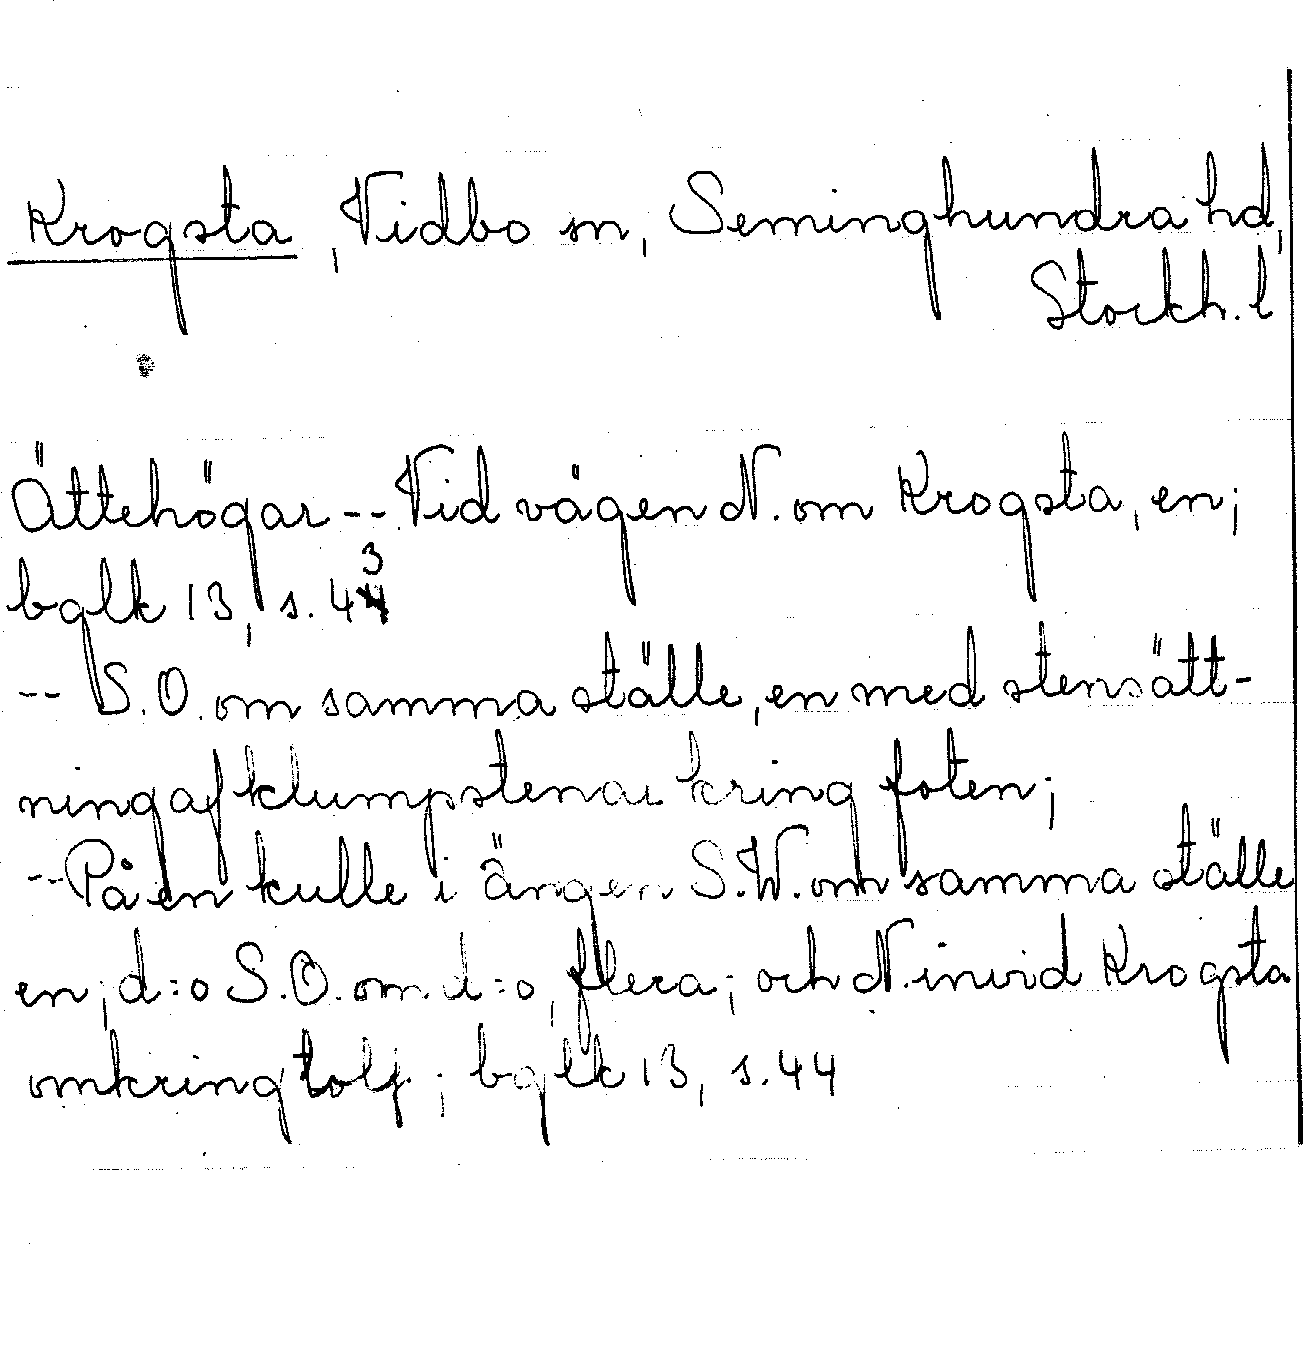 Krogsta, Vidbo sn, Seminghundra hd,
Stockh. l
Ättehögar -- Vid vägen N. om Krogsta, en;
bglk 13, s. 43
-- S.O. om samma ställe, en med stensätt-
ning af klumpstenar kring foten;
-- På en kulle i ängen S.W. om samma ställe
en; d:o S.O. om d:o, flera; och N. invid Krogsta
omkring tolf; bglk 13, s. 44